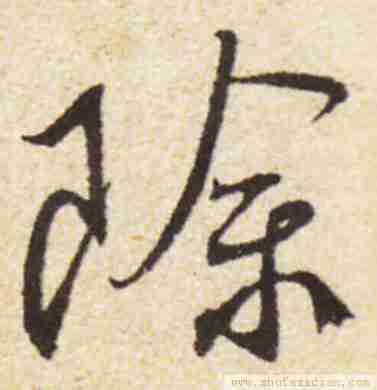 除
www.shufazidian.com